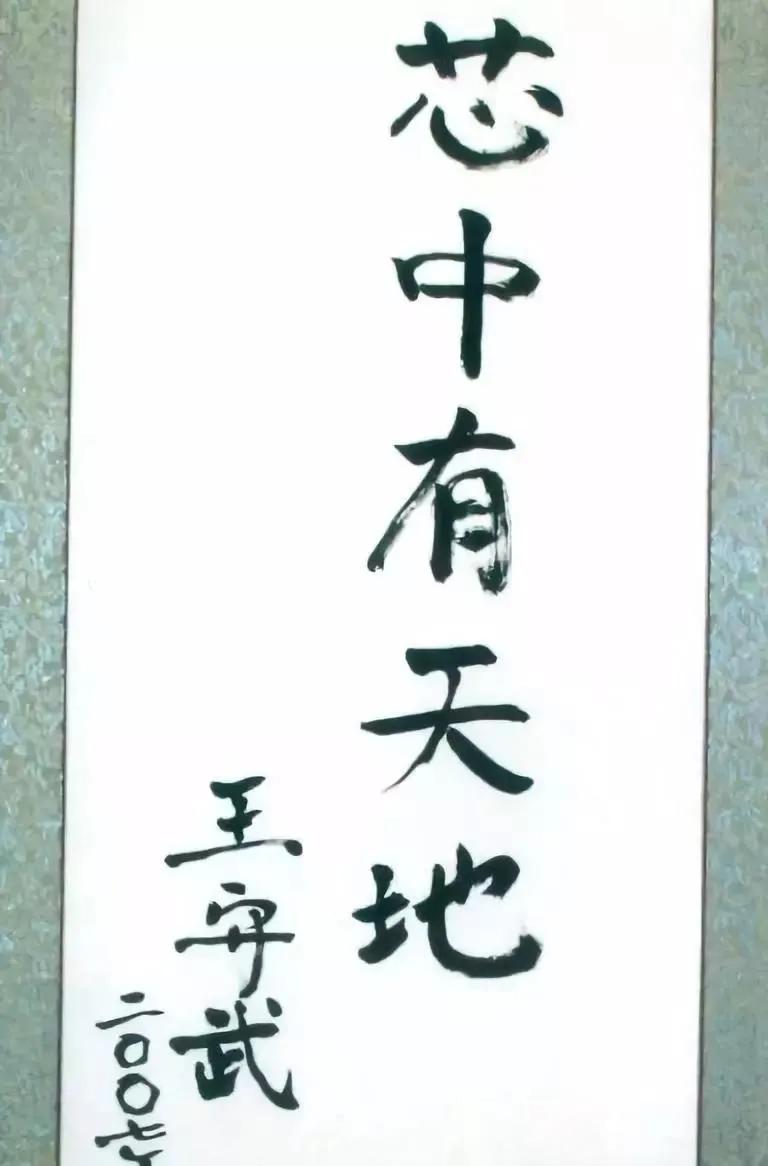 芯中有天地
王守武
二〇〇七